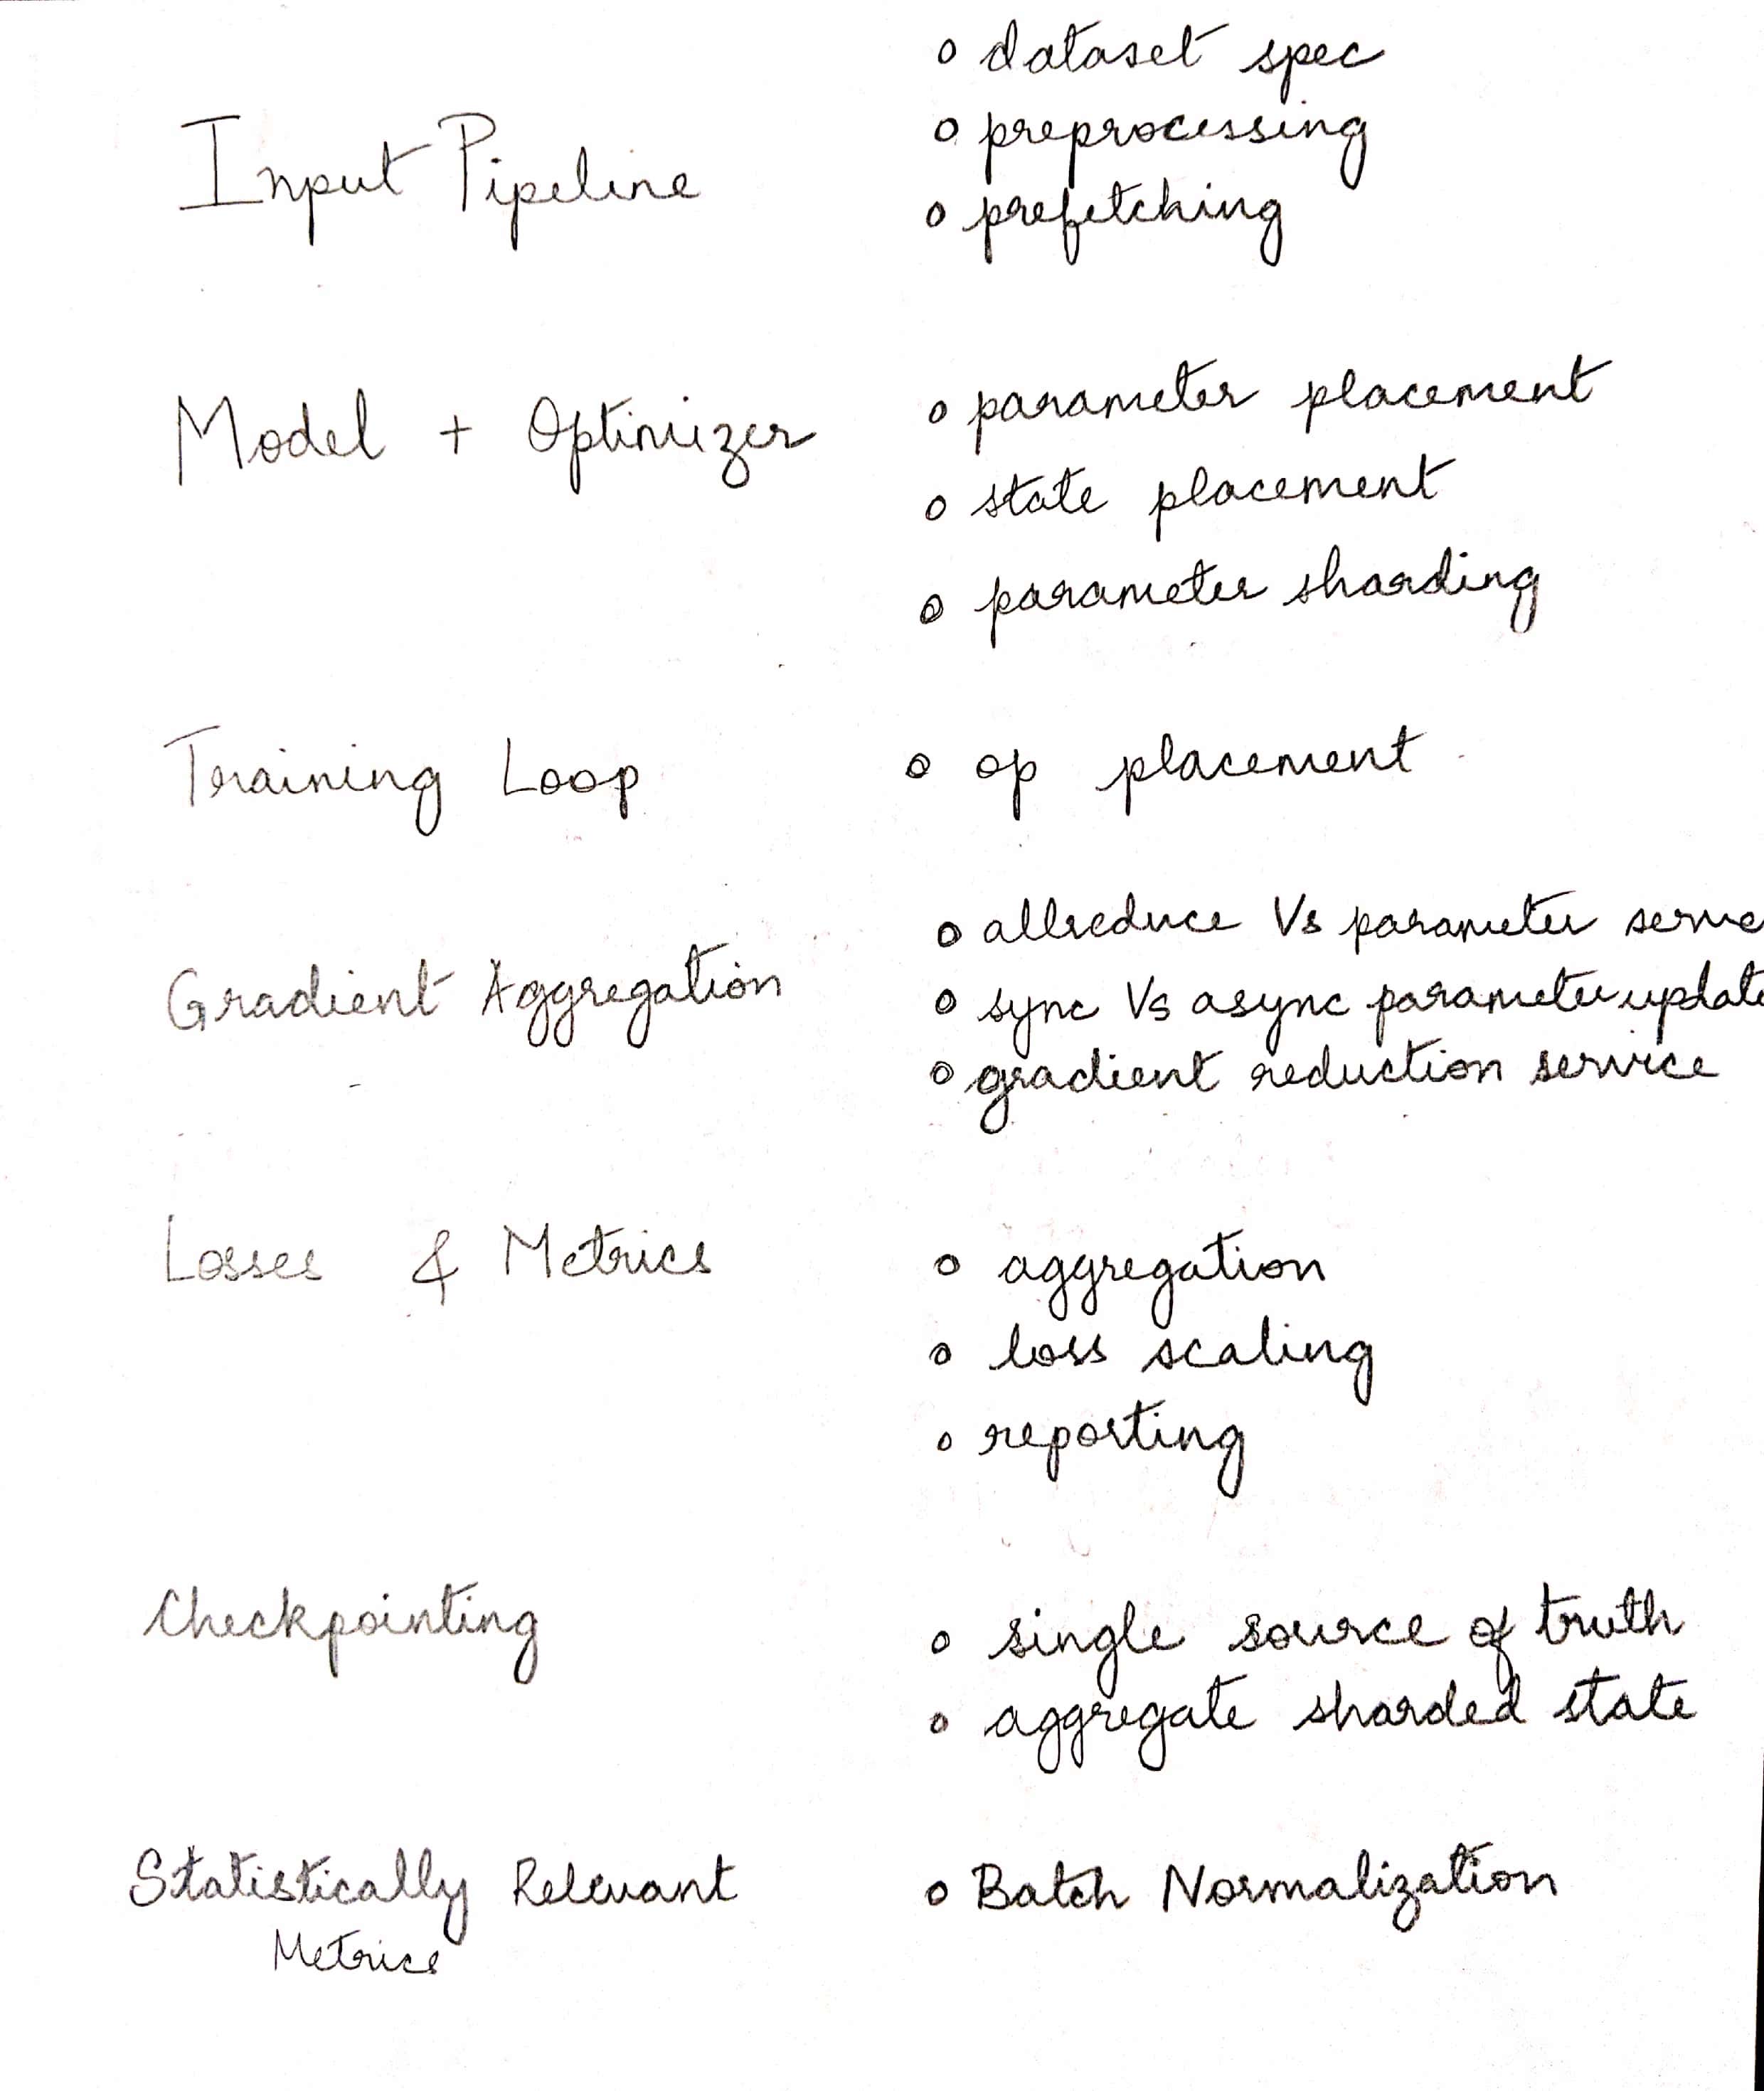 Input Pipeline
o dataset spec
o preprocessing
o prefetching
Model + Optimizer
o parameter placement
o state placement
o parameter sharding
Training Loop
o op placement
Gradient Aggregation
o allreduce Vs parameter
o sync Vs async parameter update
o gradient reduction service
Losses & Metrics
o aggregation
o loss scaling
o reporting
Checkpointing
o single source of truth
o aggregate sharded state
Statistically Relevant
Metrics
o Batch Normalization